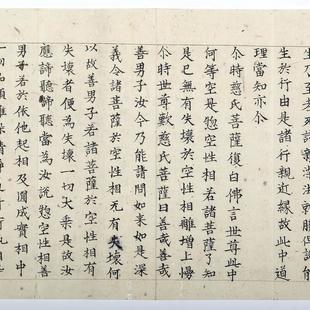 生於行由是諸行親近緣故此中道
理當知亦尒
尒時慈氏菩薩復白佛言世尊此中
何等空是惣空性相若諸菩薩了知
是已无有失壞於空性相離增上慢
尒時世尊歎慈氏菩薩曰善哉善哉
善男子汝今乃能請問如來如是深
義令諸菩薩於空性相无有失壞何
以故善男子若諸菩薩於空性相有
失壞者便為失壞一切大乘是故汝
應諦聽諦聽當為汝說惣空性相善
男子若於依他起相及圓成實相中
一切品類雜染清淨